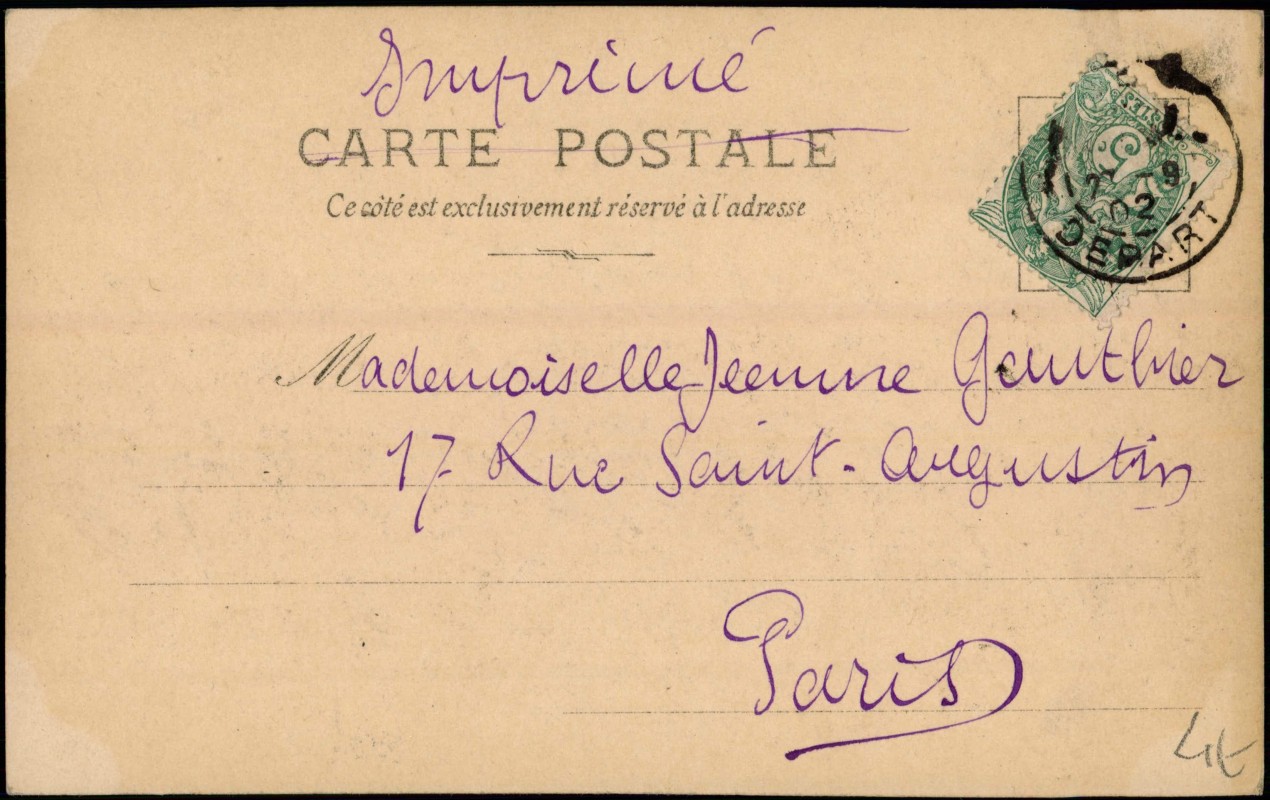 Imprimé
CARTE POSTALE
Ce côté est exclusivement réservé à l'adresse
5
02
DEPART
Mademoiselle Jeanne Gauthier
17 Rue Saint-Augustin
Paris
4€